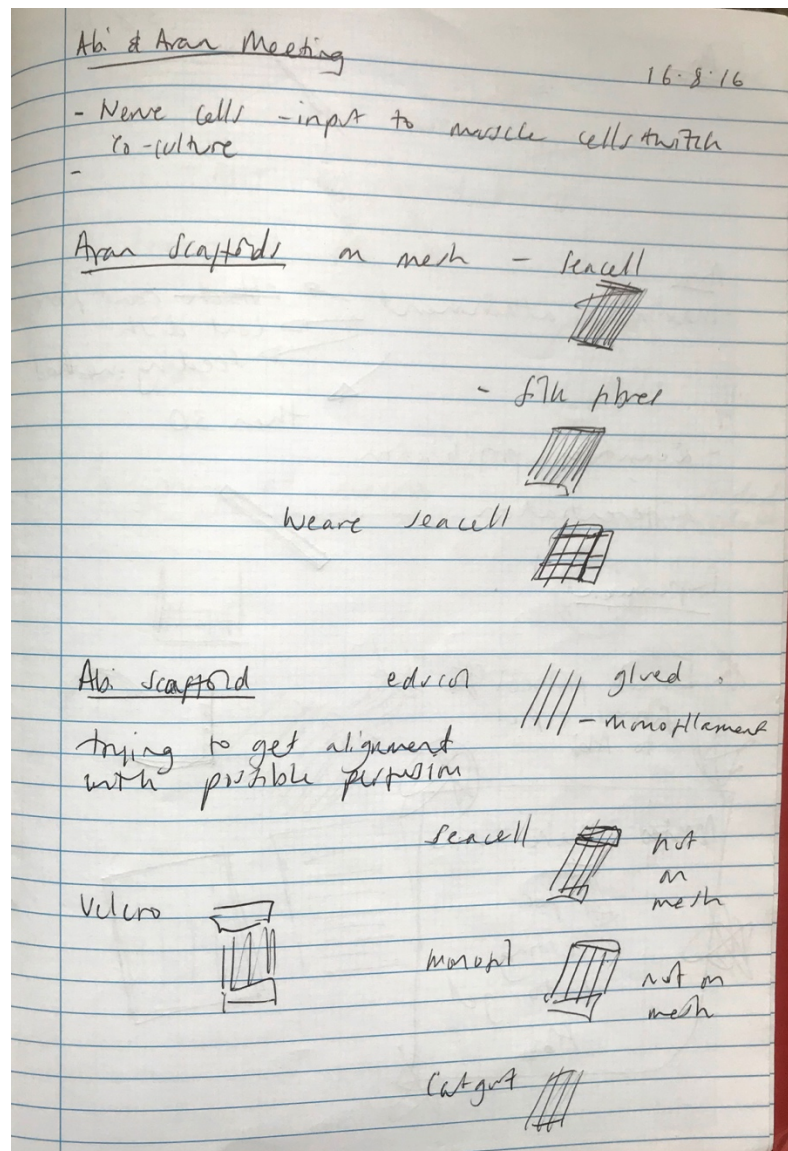 Abi & Aran Meeting
16.8.16
- Nerve cells - input to muscle cells twitch
Co-culture
-
Aran Scaffolds on mesh - Seacell
- silk fibres
Weave seacell
Abi scaffold
glued
- monofilament
trying to get alignment
with possible perfusion
Seacell
not
on
mesh
Velcro
monofil
not on
mesh
Catgut